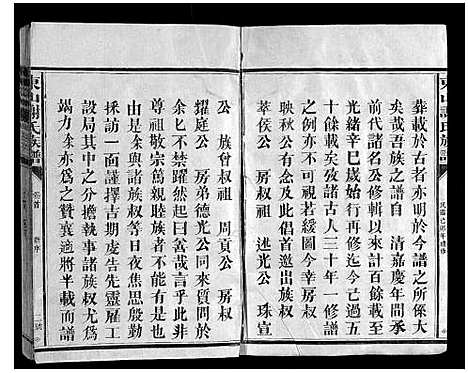 東山謝氏族譜
民國己卯年續修
葬載於古者亦明於今譜之所係大
矣哉吾族之譜自 清嘉慶年間承
前代諸名公及修輯以來計百餘載至
光緒辛巳歲始行再修迄今已過五
十餘載矣攷諸古人三十年一修譜
之例亦不可視若緩圖今幸房叔
映秋公有志及此倡首邀出族叔
萃侯公 房叔祖 述光公 珠宣
公 族曾叔祖 周貢公 房叔
耀庭公 房弟德光公同來質問於
余乜不禁躍然起曰善哉言乎此非
尊祖敬宗篤親睦族者何能若此於
是余與諸族叔等日夜焦思殷勤
採訪一面謹擇吉期虔告先靈雇工
設局其中之分擔執事諸族叔尤為
竭力余亦為之贊襄適將半載而譜
東山謝氏族譜
卷首
新序
二號